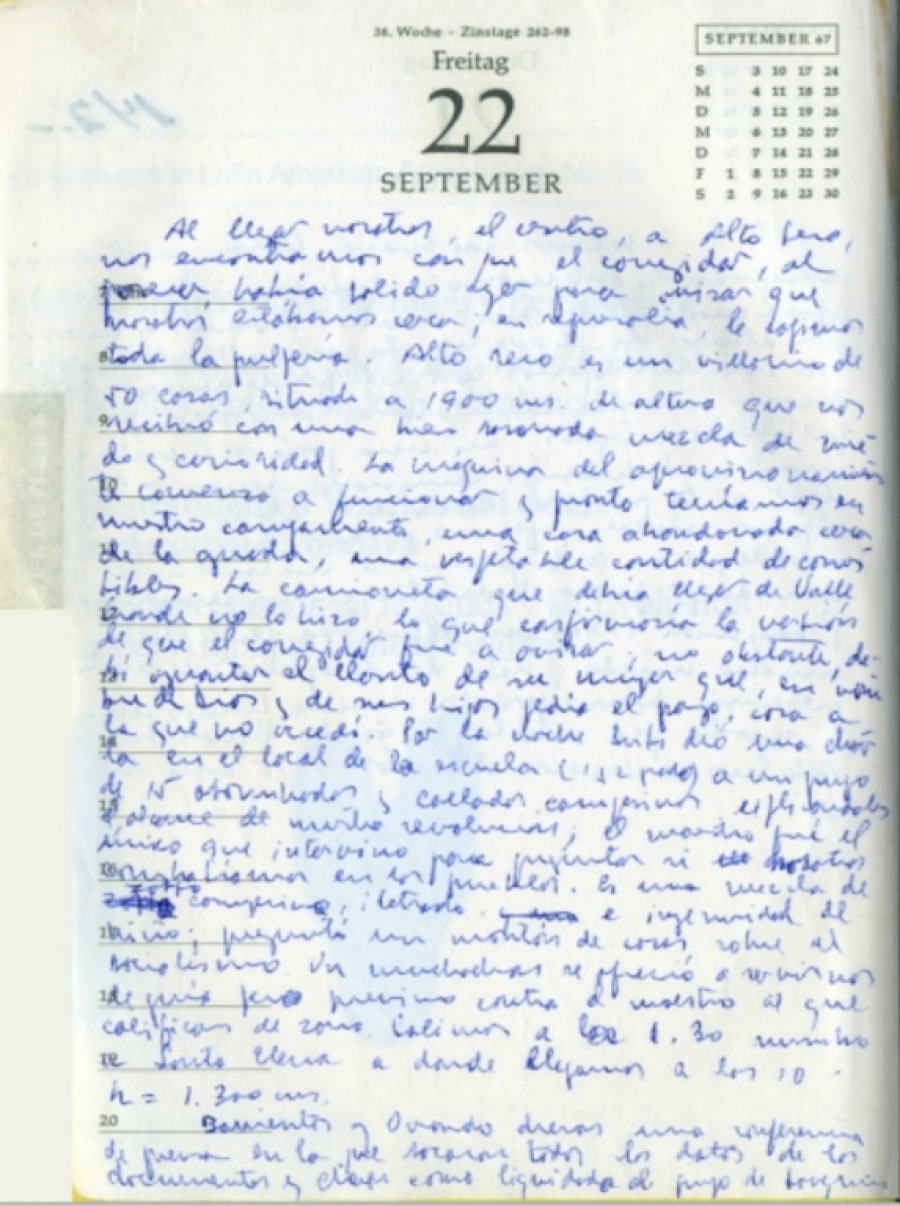 38. Woche - Zinstage 262-98
Freitag
22
SEPTEMBER
SEPTEMBER 67
S 3 10 17 24
M 4 11 18 25
D 5 12 19 26
M 6 13 20 27
D 7 14 21 28
F 1 8 15 22 29
S 2 9 16 23 30
Al llegar nosotros, el centro, a Alto Seco,
nos encontramos con que el corregidor, al
parecer, había salido ayer para avisar que
nosotros estábamos cerca; en represalia, le cogimos
8 toda la pulpería. Alto Seco es un villorrio de
50 casas, situado a 1900 ms. de altura que nos
9 recibió con una bien sazonada mezcla de mie
do y curiosidad. La máquina del aprovisionamien
10 to comenzó a funcionar y pronto teníamos en
nuestro campamento, una casa abandonada cerca
11 de la aguada, una respetable cantidad de comes
tibles. La camioneta que debía llegar de Valle
12 grande no lo hizo lo que confirmaría la versión
de que el corregidor fue a avisar; no obstante, de-
13 bí aguantar el llanto de su mujer que, en nom
bre de Dios y de sus hijos pedía el pago, cosa a
14 la que no accedí. Por la noche Inti dió una char
la en el local de la escuela (1º y 2 grado) a un grupo
15 de 15 asombrados y callados campesinos explicándoles
el alcance de nuestra revolución; el maestro fué el
único que intervino para preguntar si nosotros
16 combatíamos en los pueblos. Es una mezcla de
zorro campesino, letrado e ingenuidad de
17 niño; preguntó un montón de cosas sobre el
socialismo. Un muchachón se ofreció a servirnos
18 de guía pero previno contra el maestro al que
califican de zorro. Salimos a la 1.30 rumbo
19 a Santa Elena a donde llegamos a las 10.
h = 1.300 ms.
20 Barrientos y Ovando dieron una conferencia
de prensa en la que sacaron todos los datos de los
documentos y dieron como liquidado al grupo de Joaquín